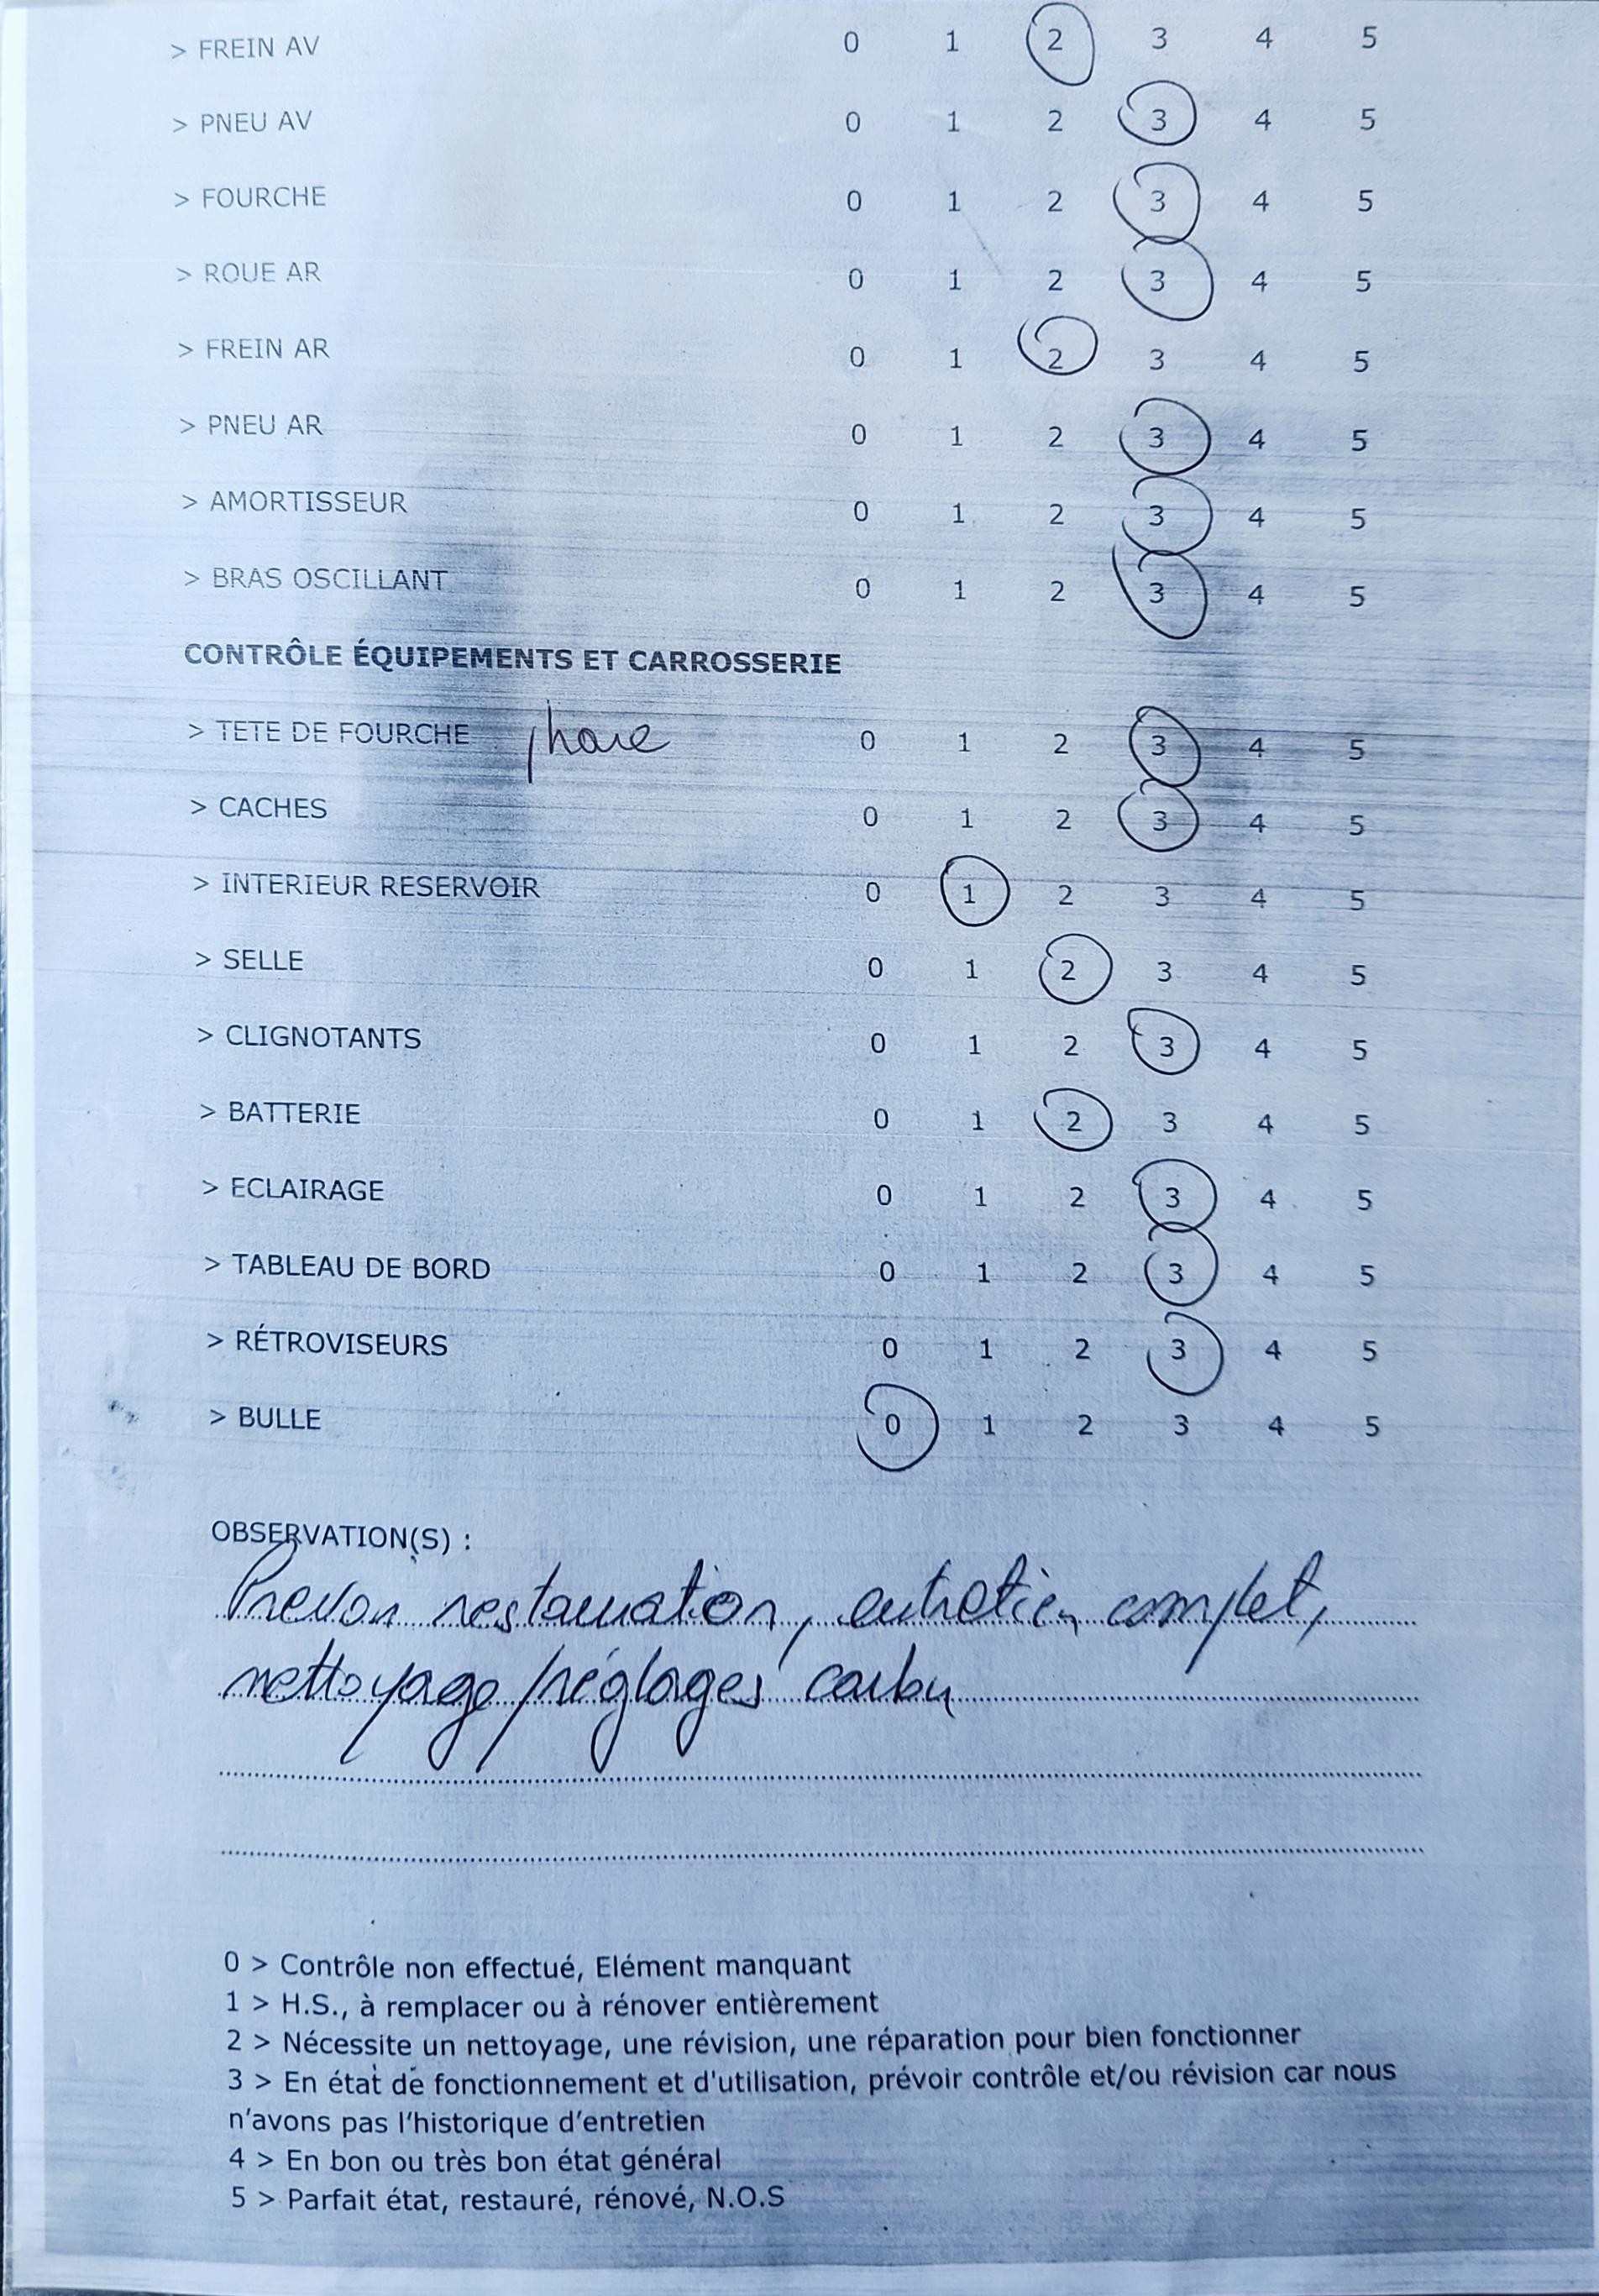 > FREIN AV 0 1 2 3 4 5
> PNEU AV 0 1 2 3 4 5
> FOURCHE 0 1 2 3 4 5
> ROUE AR 0 1 2 3 4 5
> FREIN AR 0 1 2 3 4 5
> PNEU AR 0 1 2 3 4 5
> AMORTISSEUR 0 1 2 3 4 5
> BRAS OSCILLANT 0 1 2 3 4 5
CONTRÔLE ÉQUIPEMENTS ET CARROSSERIE
> TETE DE FOURCHE phare 0 1 2 3 4 5
> CACHES 0 1 2 3 4 5
> INTERIEUR RESERVOIR 0 1 2 3 4 5
> SELLE 0 1 2 3 4 5
> CLIGNOTANTS 0 1 2 3 4 5
> BATTERIE 0 1 2 3 4 5
> ECLAIRAGE 0 1 2 3 4 5
> TABLEAU DE BORD 0 1 2 3 4 5
> RÉTROVISEURS 0 1 2 3 4 5
> BULLE 0 1 2 3 4 5
OBSERVATION(S) :
Prevoir restauration, entretien complet,
nettoyage/réglages carbu
0 > Contrôle non effectué, Elément manquant
1 > H.S., à remplacer ou à rénover entièrement
2 > Nécessite un nettoyage, une révision, une réparation pour bien fonctionner
3 > En état de fonctionnement et d'utilisation, prévoir contrôle et/ou révision car nous
n'avons pas l'historique d'entretien
4 > En bon ou très bon état général
5 > Parfait état, restauré, rénové, N.O.S